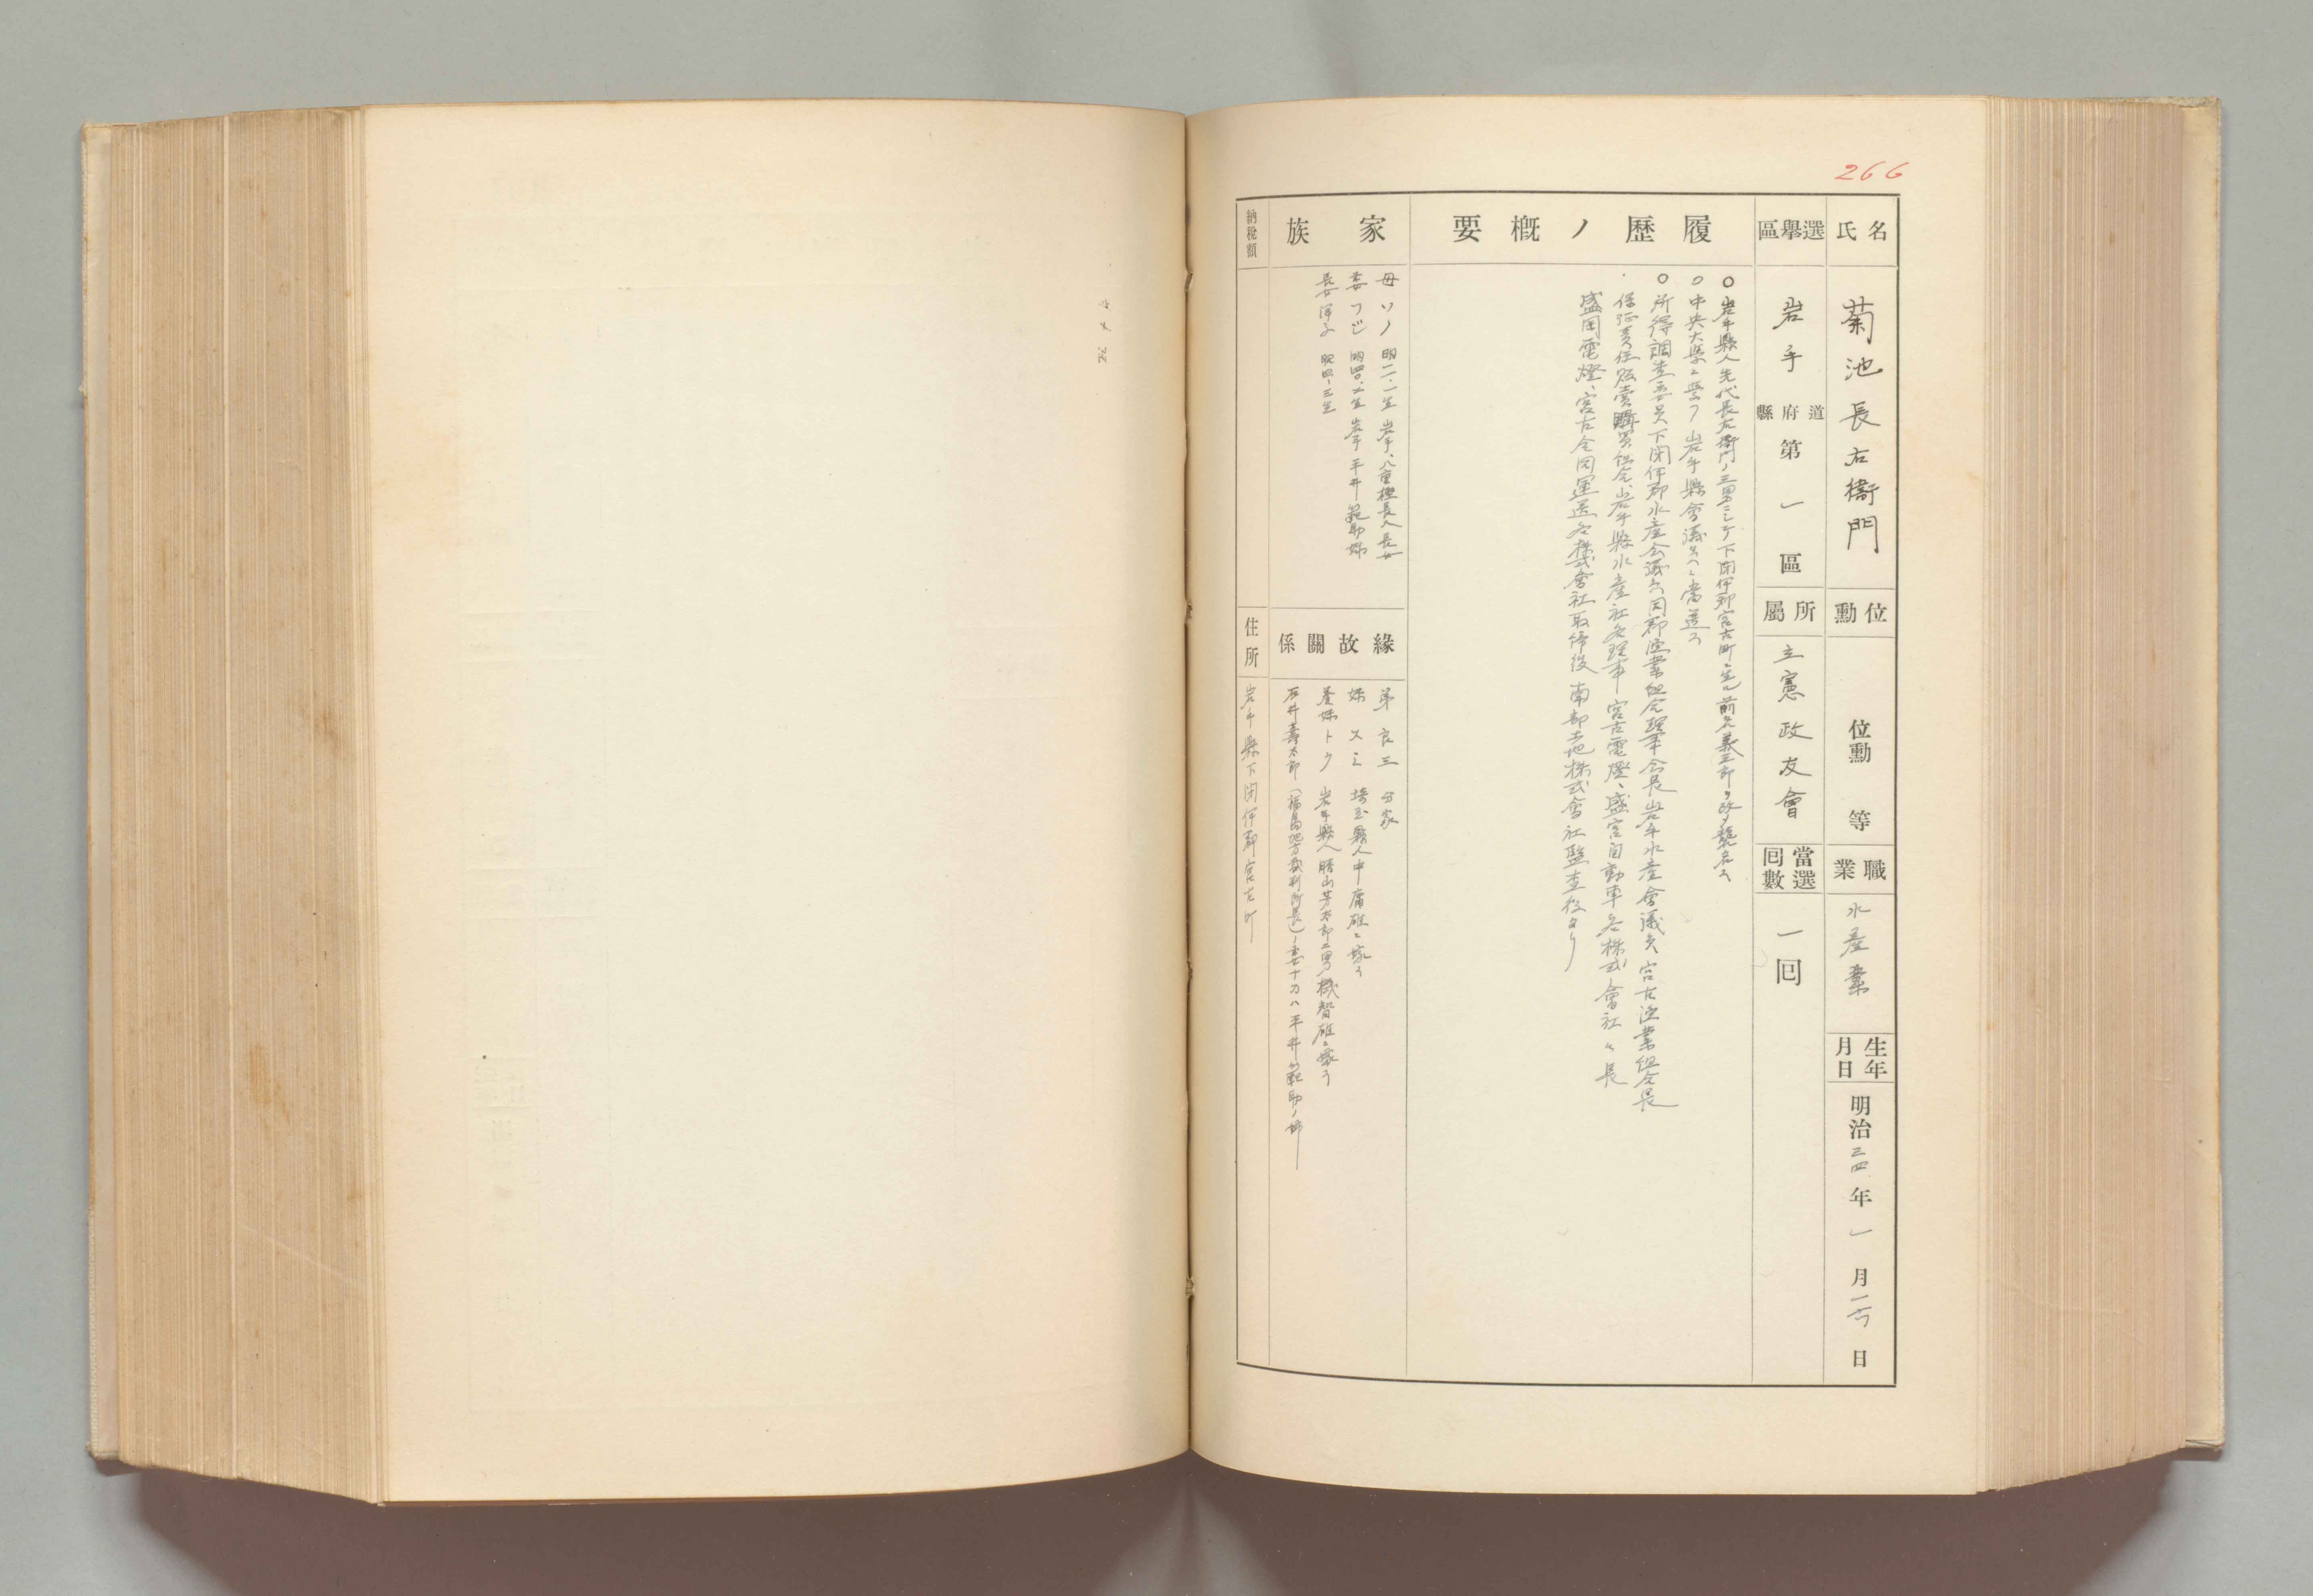 266
氏名
菊池長右衞門
位勳
位勳 等
職業
水産業
生年月日
明治三四年一月一六日
選擧區
岩手 道府縣 第一區
所屬
立憲政友會
當選回數
一回
履歷ノ概要
○岩手縣人先代長右衞門ノ三男ニシテ下閉伊郡宮古町ニ生ル前名義三郎ヲ改メ襲名ス
○中央大學ニ學フ岩手縣會議員ニ當選ス
○所得調査委員下閉伊郡水産会議員同郡漁業組合理事会長岩手水産會議員宮古漁業組合長
保証責任販賣購買組合、岩手縣水産社各理事 宮古電燈、盛宮自動車各株式會社々長
盛岡電燈、宮古合同運送各株式會社取締役 南部土地株式會社監査役タリ
家族
母ソノ 明一二・一生 岩手、八重樫長人長女
妻フジ 明四〇・六生 岩手 平井範助姉
長女洋子 昭四・三生
緣故關係
弟 良三 分家
妹 スミ 埼玉縣人中庸雄ニ嫁ス
養妹トク 岩手縣人勝山芳太郎二男機智雄ニ嫁ス
石井壽太郎(福島地方裁判所長)ノ妻ナカハ平井範助ノ姉
納稅額
住所
岩手縣下閉伊郡宮古町